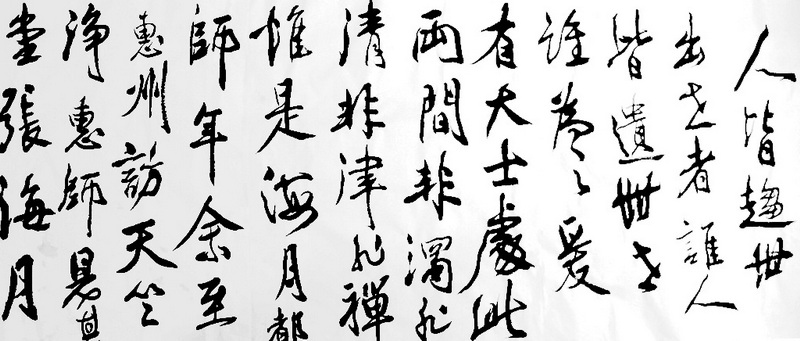 人皆趨世
出世者誰人
皆遺世世
誰為之爰
有大士處此
兩間非濁非
清非律非禪
惟是海月都
師年余至
惠州訪天竺
淨惠師見其
堂張海月